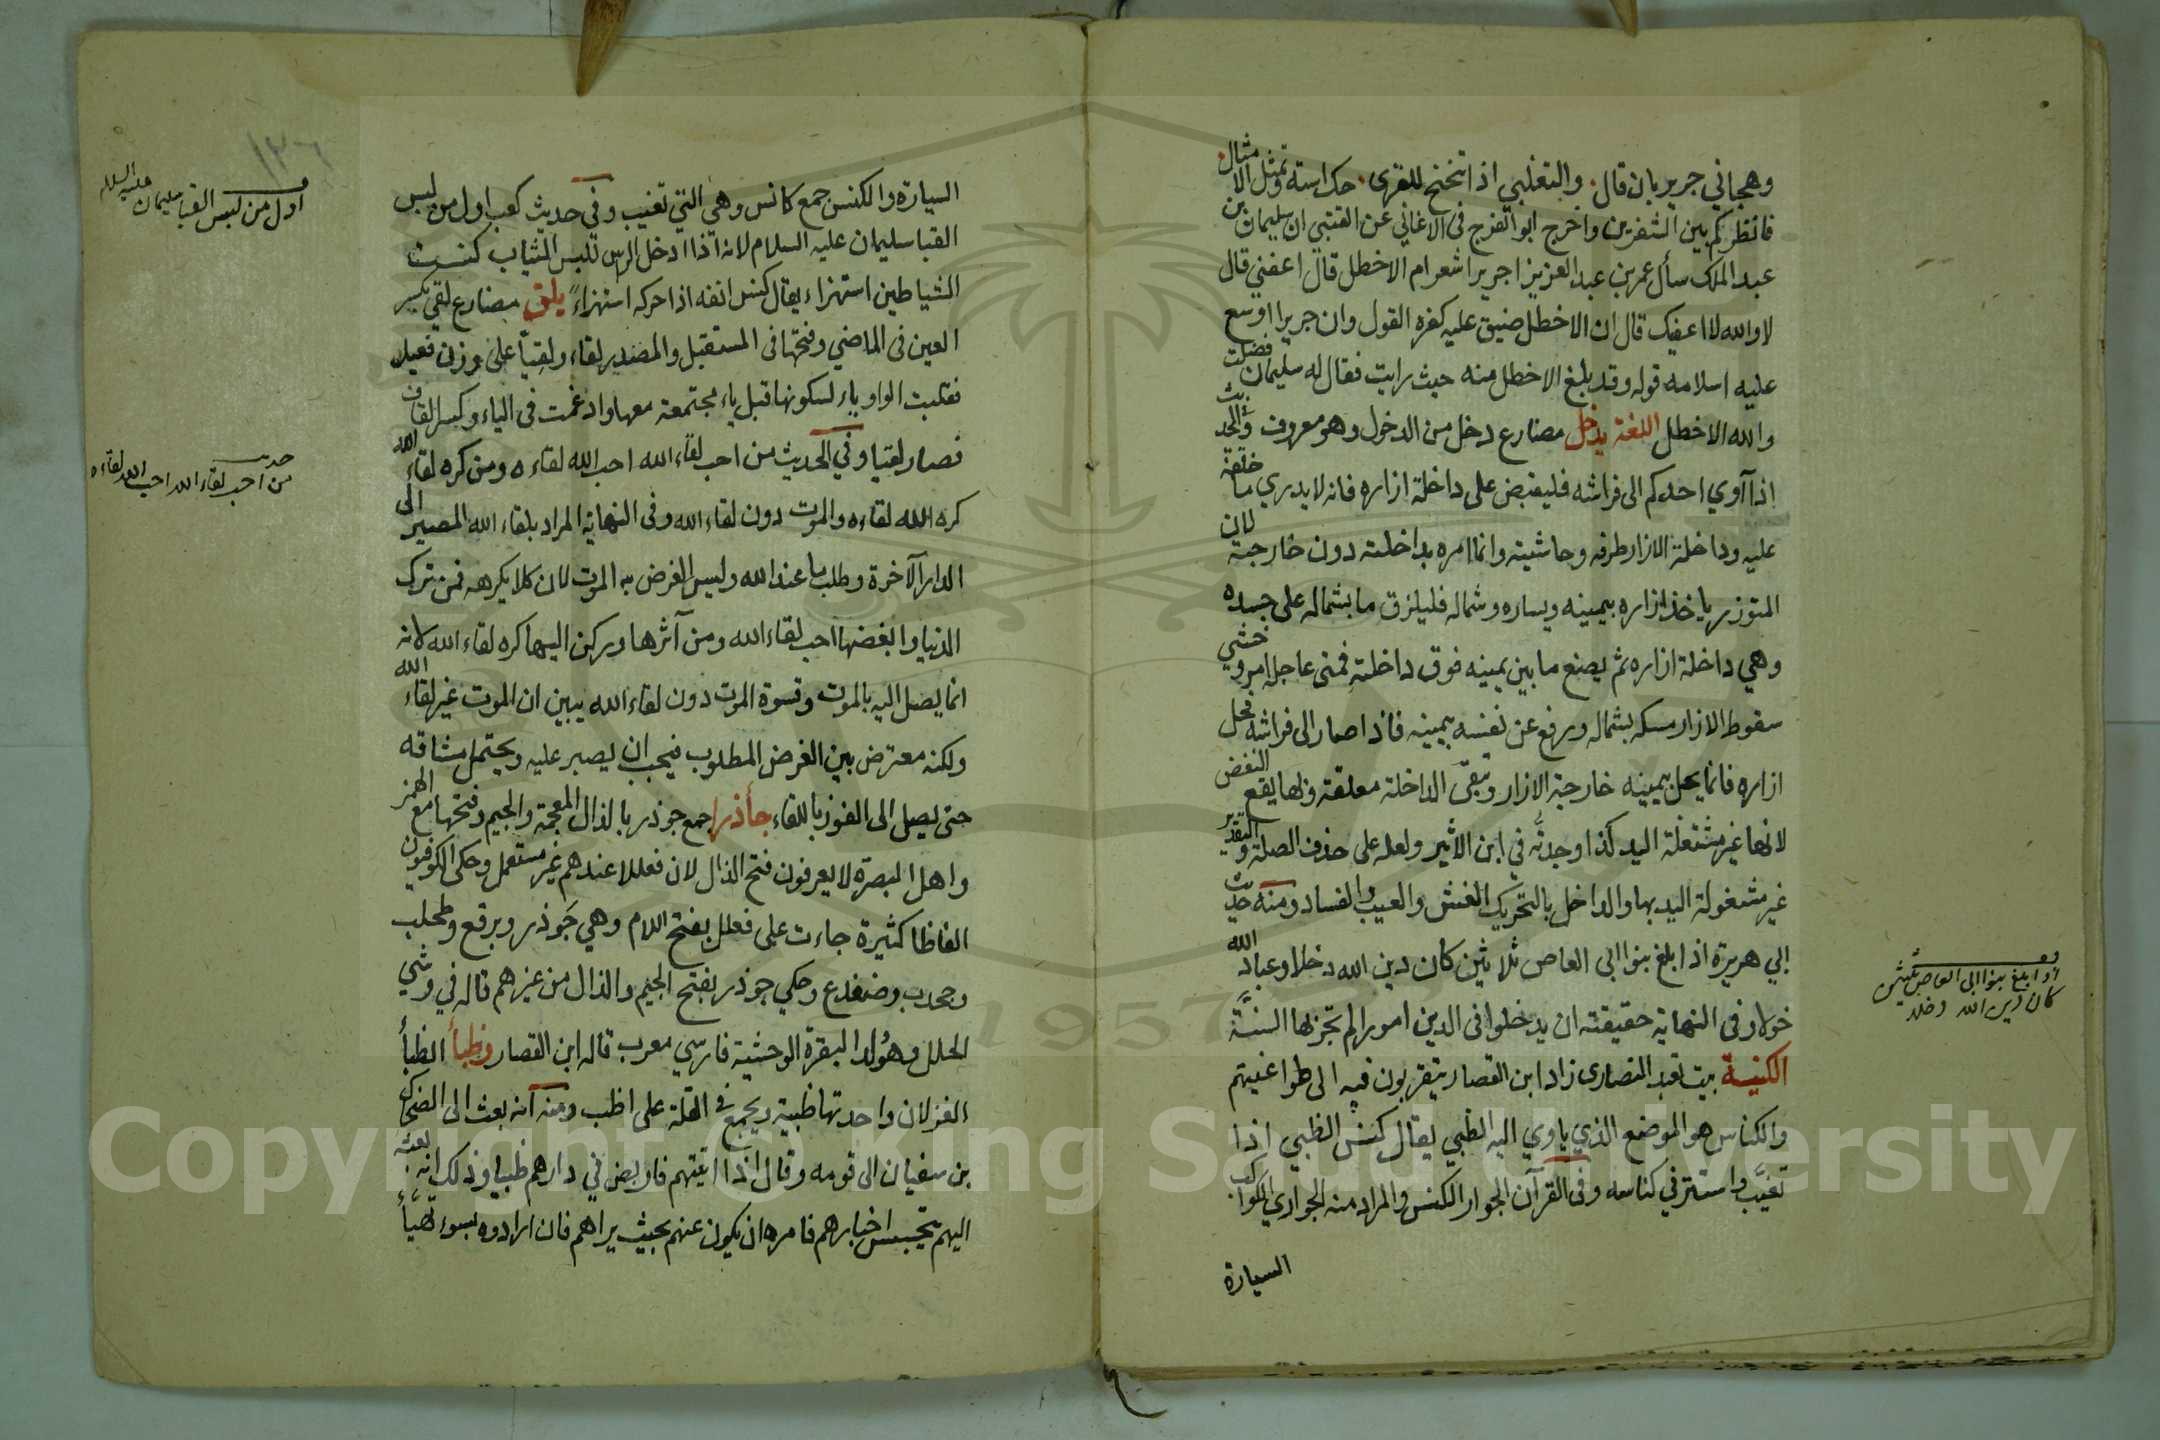 وهجاني جرير بان قال. والتغلبي اذا تنحنح للقرى. حك استه وتمثل الامثال.
فانظركم بين الشعرين واخرج ابو الفرج في الاغاني عن القتبي ان سليمان بن
عبد الملك سأل عمر بن عبد العزيز اجرير اشعر ام الاخطل قال اعفني قال
لا والله لا اعفيك قال ان الاخطل ضيق عليه كفره القول وان جريرا اوسع
عليه اسلامه قوله وقد بلغ الاخطل منه حيث رايت فقال له سليمان فضلت
والله الاخطل اللغة يدخل مضارع دخل من الدخول وهو معروف والحديث
اذا آوي احدكم الى فراشه فليقبض على داخلة ازاره فانه لا يدري ما خلفه
عليه وداخلة الازار طرفه وحاشيته وانما امره بداخلته دون خارجته لان
المتوزر ياخذ ازاره بيمينه ويساره وشماله فليلزق ما بشماله على جسده
وهي داخلة ازاره ثم يضع ما بين يمينه فوق داخلته فمتى عاجله امر وخشي
سقوط الازار مسكه بشماله ورفع عن نفسه بيمينه فاذا صار الى فراشه فحل
ازاره فانما يحل بيمينه خارجة الازار وتبقى الداخلة معلقة وبها يقع النفض
لانها غير مشتغلة اليد كذا وجدته في ابن الاثير ولعله على حذف الصلة والتقدير
غير مشغولة اليد بها والداخل بالتحريك الغش والعيب والفساد ومنه حديث
ابي هريرة اذا بلغ بنوا ابي العاص ثلاثين كان دين الله دخلا وعباد الله
خولا وفى النهاية حقيقته ان يدخلوا في الدين امورا لم تجز بها السنة
الكنيسة بيت تعبد النصارى زاد ابن القصار يتقربون فيه الى طواغيتهم
والكناس هو الموضع الذي ياوي اليه الظبي يقال كنس الظبي اذا
تغيب واستتر في كناسه وفى القرآن الجوار الكنس والمراد منه الجواري الكواكب
السيارة
اذا بلغ بنوا ابي العاص ثلثين
كان دين الله دخلا
السيارة والكنس جمع كانس وهي التي تغيب وفى حديث كعب اول من لبس
القبا سليمان عليه السلام لانه اذا ادخل الراس تلبس الثياب كنست
الشياطين استهزاء يقال كنس انفه اذا حركه استهزاء يلق مضارع لقي بكسر
العين فى الماضي وفتحها فى المستقبل والمصدر لقاء ولقيا على وزن فعيل
فقلبت الواو ياء لسكونها قبل ياء مجتمعة معها وادغمت فى الياء وكسر القاف
فصار لقيا وفي الحديث من احب لقاء الله احب الله لقاءه ومن كره لقاء الله
كره الله لقاءه والموت دون لقاء الله وفى النهاية المراد بلقاء الله المصير الى
الدار الآخرة وطلب ما عند الله وليس الغرض به الموت لان كلا يكرهه فمن ترك
الدنيا وابغضها احب لقاء الله ومن آثرها وركن اليها كره لقاء الله لانه
انما يصل اليه بالموت وقسوة الموت دون لقاء الله يبين ان الموت غير لقاء الله
ولكنه معترض بين الغرض المطلوب فيجب ان يصبر عليه ويحتمل مشاقه
حتى يصل الى الفوز باللقاء جأذرا جمع جوذر بالذال المعجمة والجيم وفتحها مع الهمز
واهل البصرة لا يعرفون فتح الذال لان فعللا عندهم غير مستعمل وحكى الكوفيون
الفاظا كثيرة جاءت على فعلل بفتح اللام وهي جوذر وبرقع وطحلب
وجحدب وضفدع وحكي جوذر بفتح الجيم والذال من غيرهم قاله في وشي
الحلل وهو ولد البقرة الوحشية فارسي معرب قاله ابن القصار وظبأ الظبأ
الغزلان واحدتها ظبية ويجمع في القلة على اظب ومنه انه بعث الى الضحاك
بن سفيان الى قومه وقال اذا اتيتهم فاربض في دارهم ظبيا وذلك انه بعثه
اليهم يتجسس اخبارهم فامره ان يكون عنهم بحيث يراهم فان ارادوه بسوء تهيأ
١٣٦
اول من لبس القبا سليمان عليه السلام
حديث
من احب لقاء الله احب الله لقاءه
Copyright © King Saud University
1957